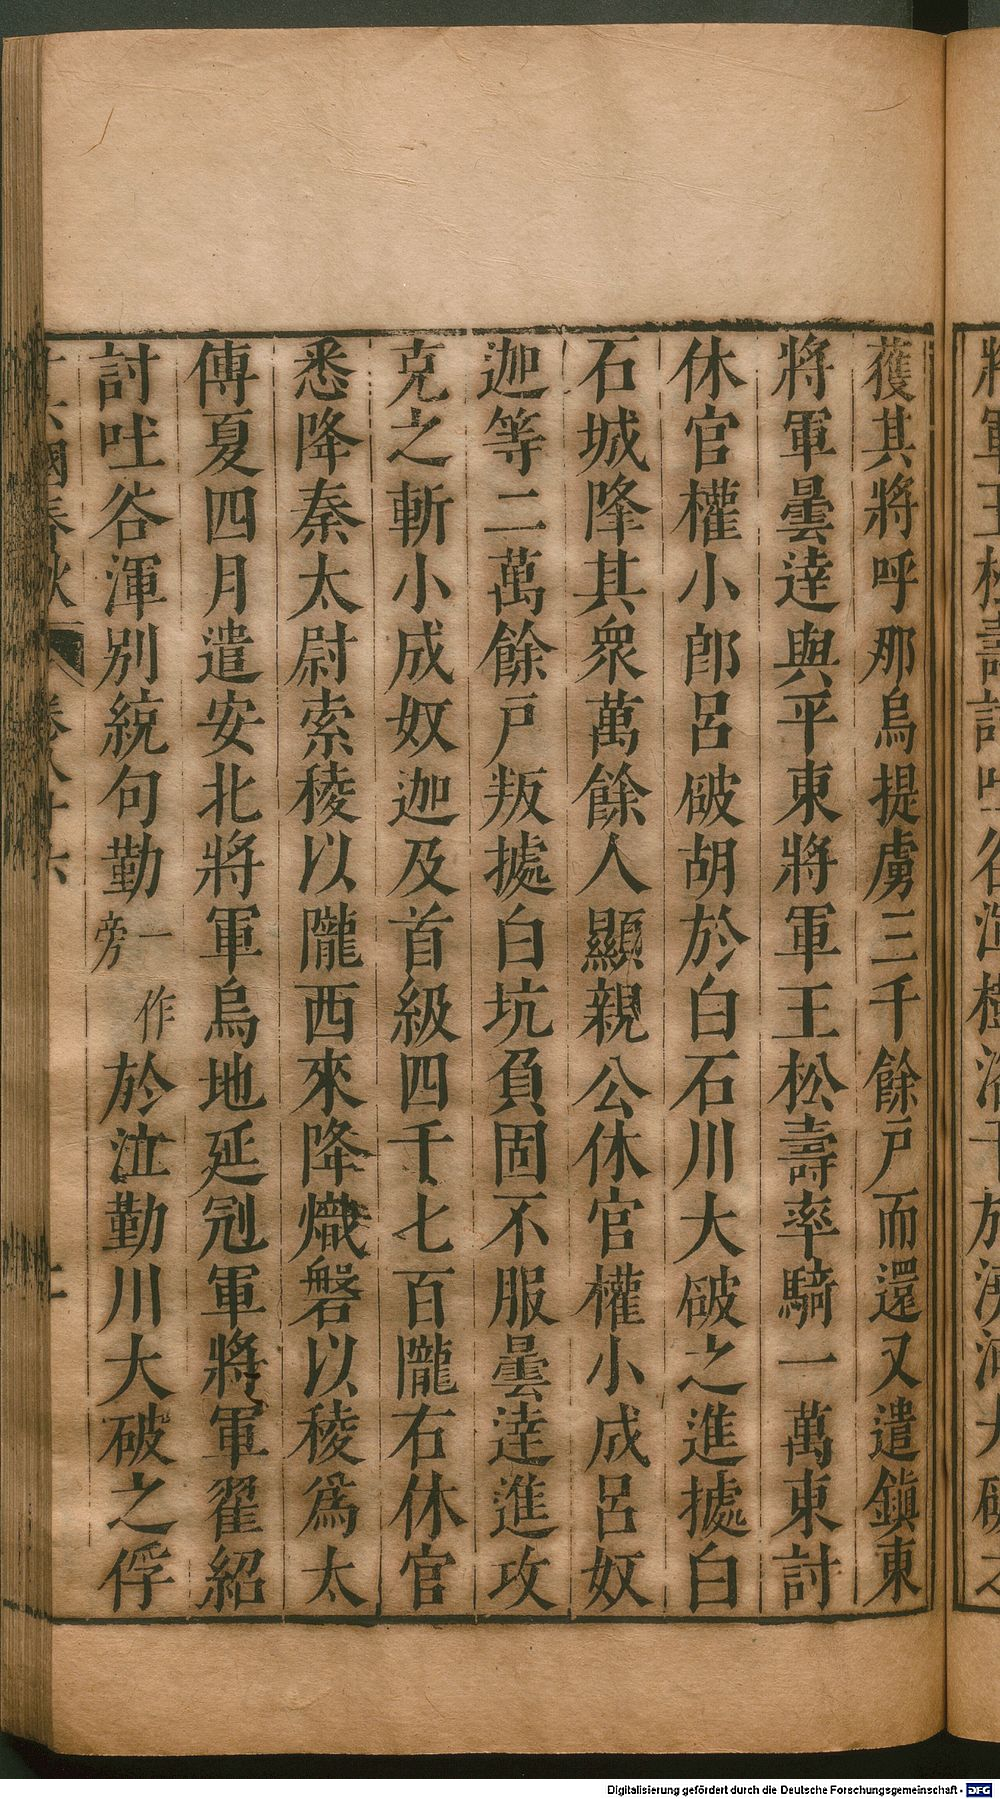 獲其將呼那烏提虜三千餘戶而還又遣鎭東
將軍曇逹與平東將軍王松壽率騎一萬東討
休官權小郎呂破胡於白石川大破之進據白
石城降其衆萬餘人顯親公休官權小成呂奴
迦等二萬餘戶叛據白坑負固不服曇逹進攻
克之斬小成奴迦及首級四千七百隴右休官
悉降秦太尉索稜以隴西來降熾磐以稜爲太
傅夏四月遣安北將軍烏地延冠軍將軍翟紹
討吐谷渾別統句勤一作旁於泣勤川大破之俘
國春秋 卷八十六
Digitalisierung gefördert durch die Deutsche Forschungsgemeinschaft - DFG